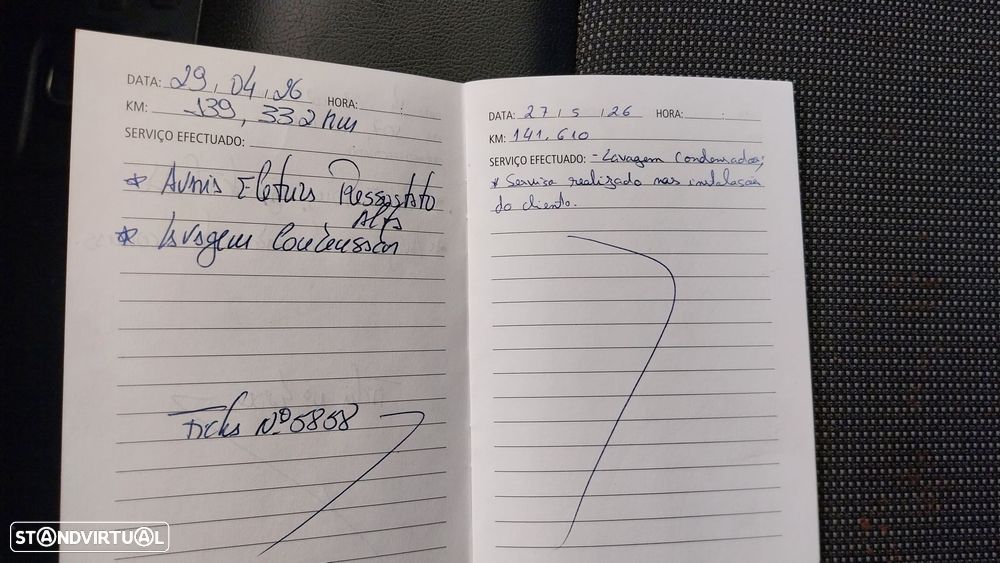 DATA: 29, 04, 26 HORA: :
KM: 139, 332 km
SERVIÇO EFECTUADO:
* Avaria Pressostato
Alta
* Lavagem Condensador
Ficha Nº 5858
DATA: 27 / 5 / 26 HORA: :
KM: 141, 610
SERVIÇO EFECTUADO: - Lavagem Condensador;
* Serviço realizado nas instalações
do cliente.
STANDVIRTUAL